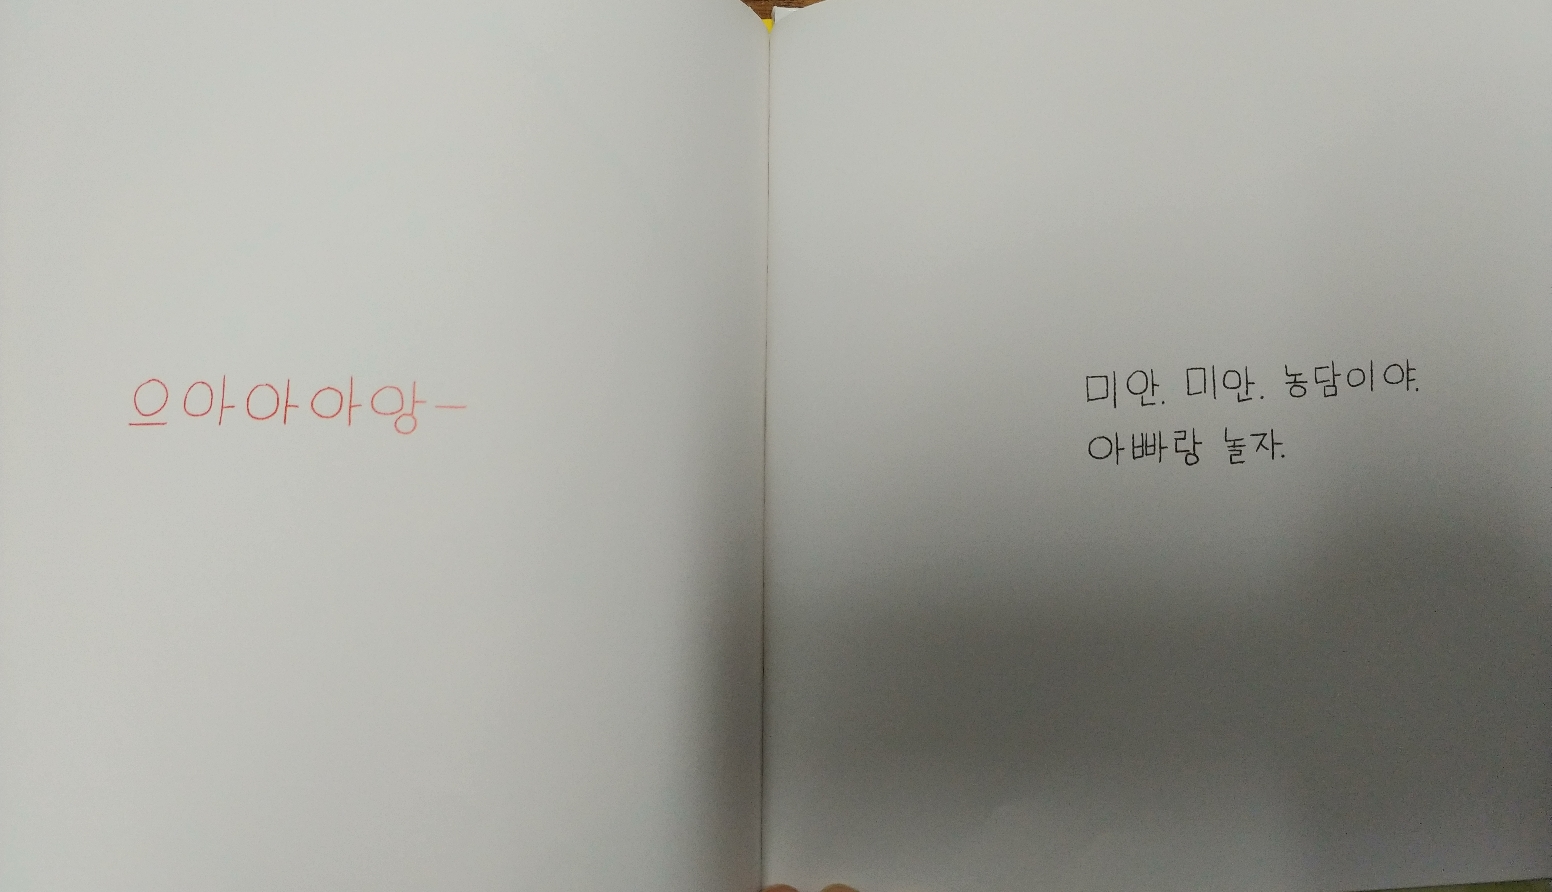 으아아아앙-
미안. 미안. 농담이야.
아빠랑 놀자.